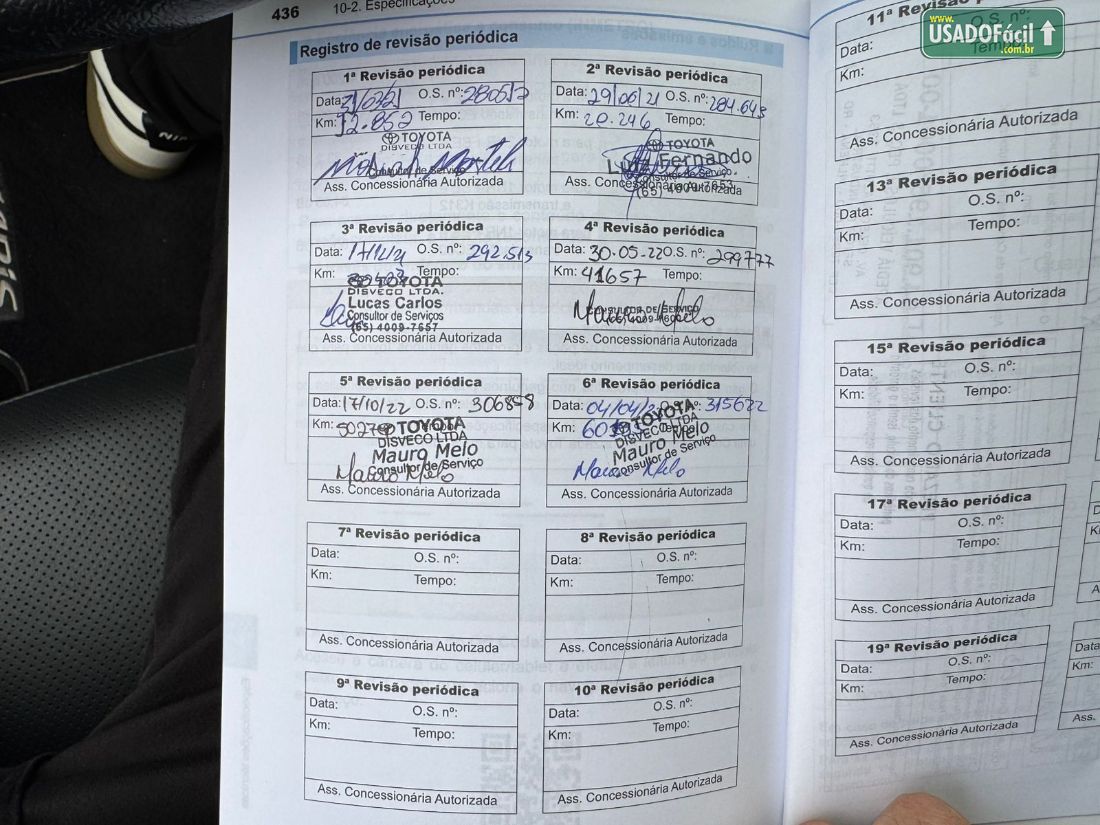 436 10-2. Especificações
Registro de revisão periódica
1ª Revisão periódica
Data: O.S. nº:
Km: 12.852 Tempo:
TOYOTA
DISVECO LTDA
Consultor de Serviço
Ass. Concessionária Autorizada
2ª Revisão periódica
Data: 29/06/21 O.S. nº: 284.643
Km: 20.246 Tempo:
TOYOTA
Luiz Fernando
Consultor de Serviço
(65) 4009-7653
Ass. Concessionária Autorizada
3ª Revisão periódica
Data: O.S. nº: 292.513
Km: Tempo:
TOYOTA
DISVECO LTDA.
Lucas Carlos
Consultor de Serviços
(65) 4009-7657
Ass. Concessionária Autorizada
4ª Revisão periódica
Data: 30-05-22 O.S. nº: 299777
Km: 41657 Tempo:
Mauro Melo
CONSULTOR DE SERVIÇO
Ass. Concessionária Autorizada
5ª Revisão periódica
Data: 17/10/22 O.S. nº: 306898
Km: Tempo:
TOYOTA
DISVECO LTDA
Mauro Melo
Consultor de Serviço
Mauro Melo
Ass. Concessionária Autorizada
6ª Revisão periódica
Data: O.S. nº: 315622
Km: Tempo:
TOYOTA
DISVECO LTDA
Mauro Melo
Consultor de Serviço
Mauro Melo
Ass. Concessionária Autorizada
7ª Revisão periódica
Data: O.S. nº:
Km: Tempo:
Ass. Concessionária Autorizada
8ª Revisão periódica
Data: O.S. nº:
Km: Tempo:
Ass. Concessionária Autorizada
9ª Revisão periódica
Data: O.S. nº:
Km: Tempo:
Ass. Concessionária Autorizada
10ª Revisão periódica
Data: O.S. nº:
Km: Tempo:
Ass. Concessionária Autorizada
11ª Revisão
Data:
Km:
Ass. Concessionária Autorizada
13ª Revisão periódica
Data: O.S. nº:
Km: Tempo:
Ass. Concessionária Autorizada
15ª Revisão periódica
Data: O.S. nº:
Km: Tempo:
Ass. Concessionária Autorizada
17ª Revisão periódica
Data: O.S. nº:
Km: Tempo:
Ass. Concessionária Autorizada
19ª Revisão periódica
Data: O.S. nº:
Km: Tempo:
Ass. Concessionária Autorizada
Data:
Km:
Ass.
www.
USADOFácil
.com.br